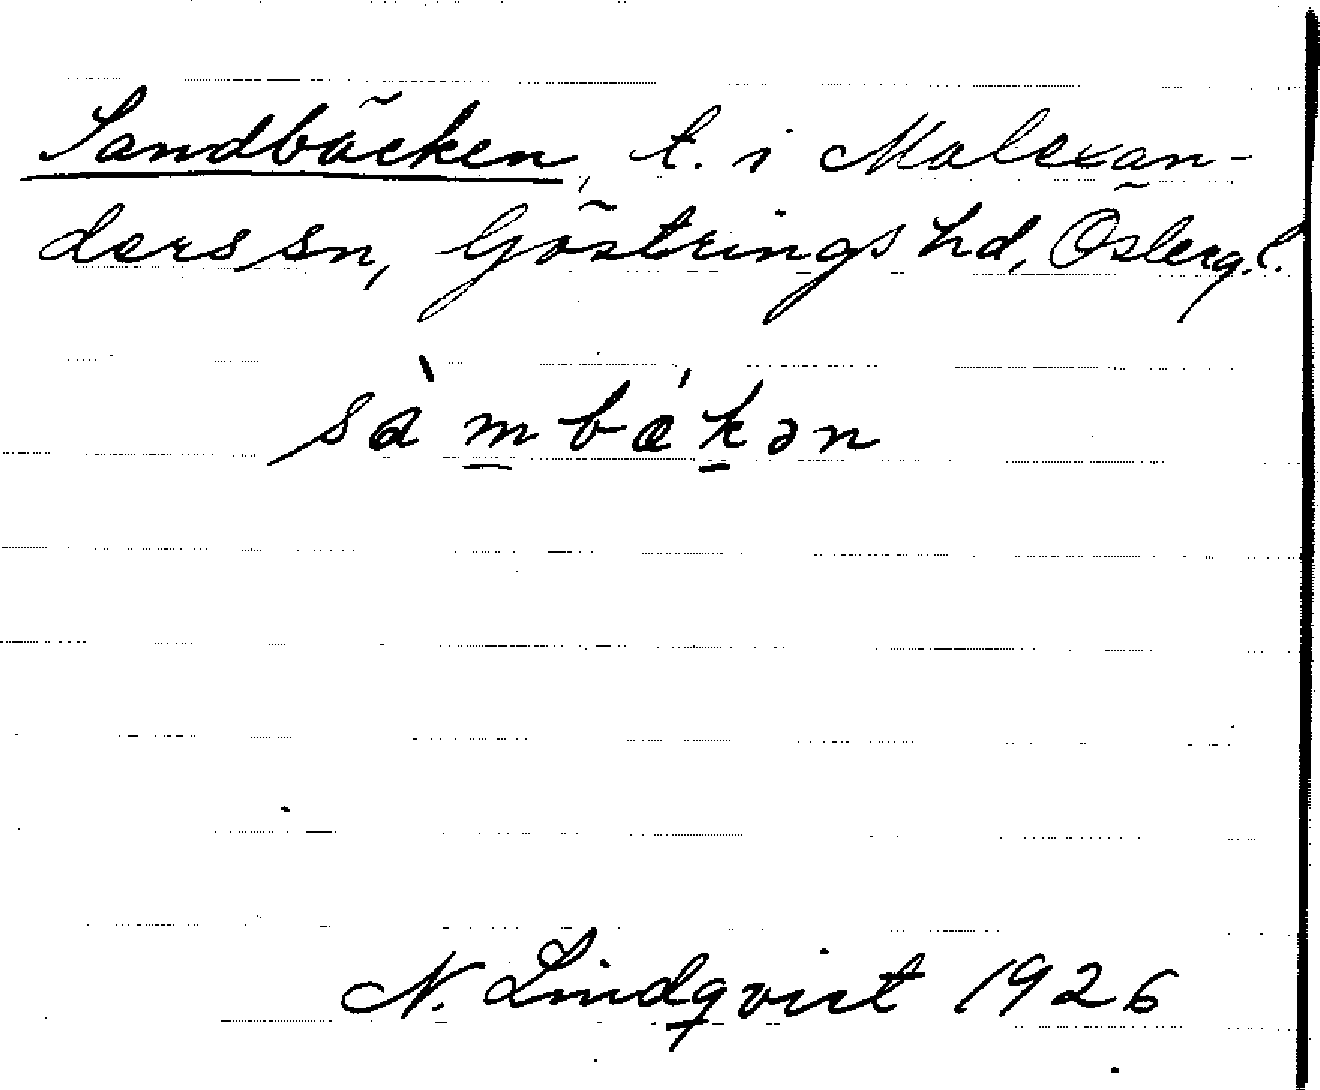 Sandbäcken, t. i Malexan-
ders sn, Göstrings hd, Österg.l.
sàmbǽkən
N. Lindqvist 1926